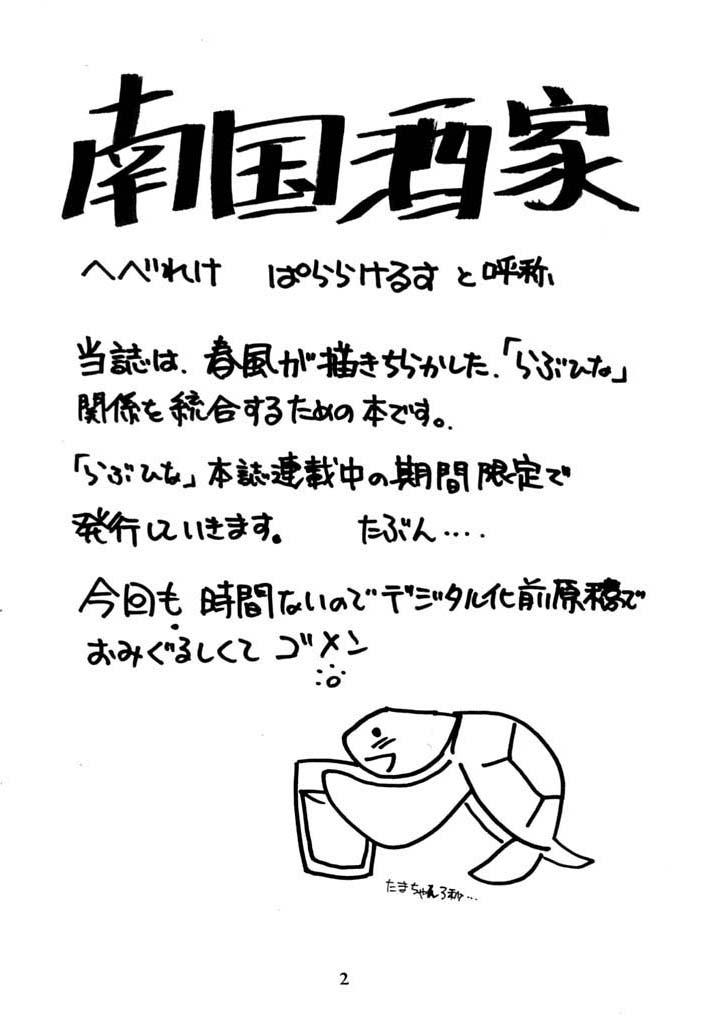 南国酒家
へべれけ ぱららけるす と呼称、
当誌は、春風が描きちらかした、「らぶひな」
関係を統合するための本です。
「らぶひな」本誌連載中の期間限定で
発行していきます。 たぶん....
今回も 時間ないのでデジタル化前原稿で
おみぐるしくて ゴメン
たまちゃん3秒...
2